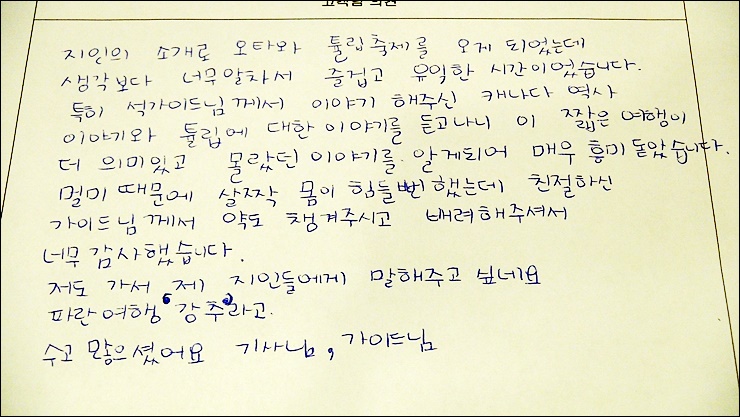 고객님 의견
지인의 소개로 오타와 튤립축제를 오게 되었는데
생각보다 너무알차서 즐겁고 유익한 시간이었습니다.
특히 석가이드님께서 이야기 해주신 캐나다 역사
이야기와 튤립에 대한 이야기를 듣고나니 이 짧은 여행이
더 의미있고 몰랐던 이야기를 알게되어 매우 흥미 돋았습니다.
멀미 때문에 살짝 몸이 힘들뻔 했는데 친절하신
가이드님께서 약도 챙겨주시고 배려해주셔서
너무 감사했습니다.
저도 가서 제 지인들에게 말해주고 싶네요
파란여행 '강추'라고.
수고 많으셨어요 기사님, 가이드님